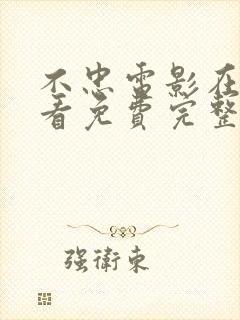 不忠电影在
看免費完整
强衛東